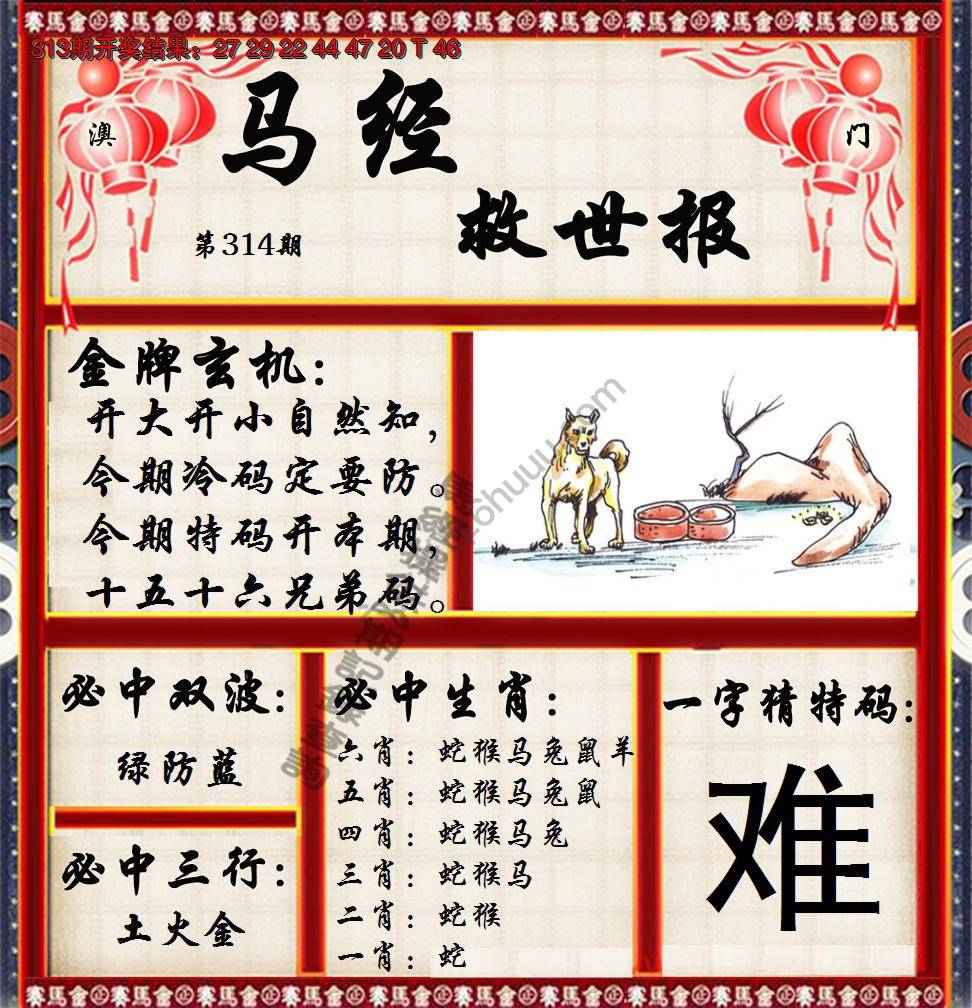 313期开奖结果：27 29 22 44 47 20 T 46
澳
门
马经
救世报
第314期
金牌玄机：
开大开小自然知，
今期冷码定要防。
今期特码开本期，
十五十六兄弟码。
必中双波：
绿防蓝
必中三行：
土火金
必中生肖：
六肖：蛇猴马兔鼠羊
五肖：蛇猴马兔鼠
四肖：蛇猴马兔
三肖：蛇猴马
二肖：蛇猴
一肖：蛇
一字猜特码：
难